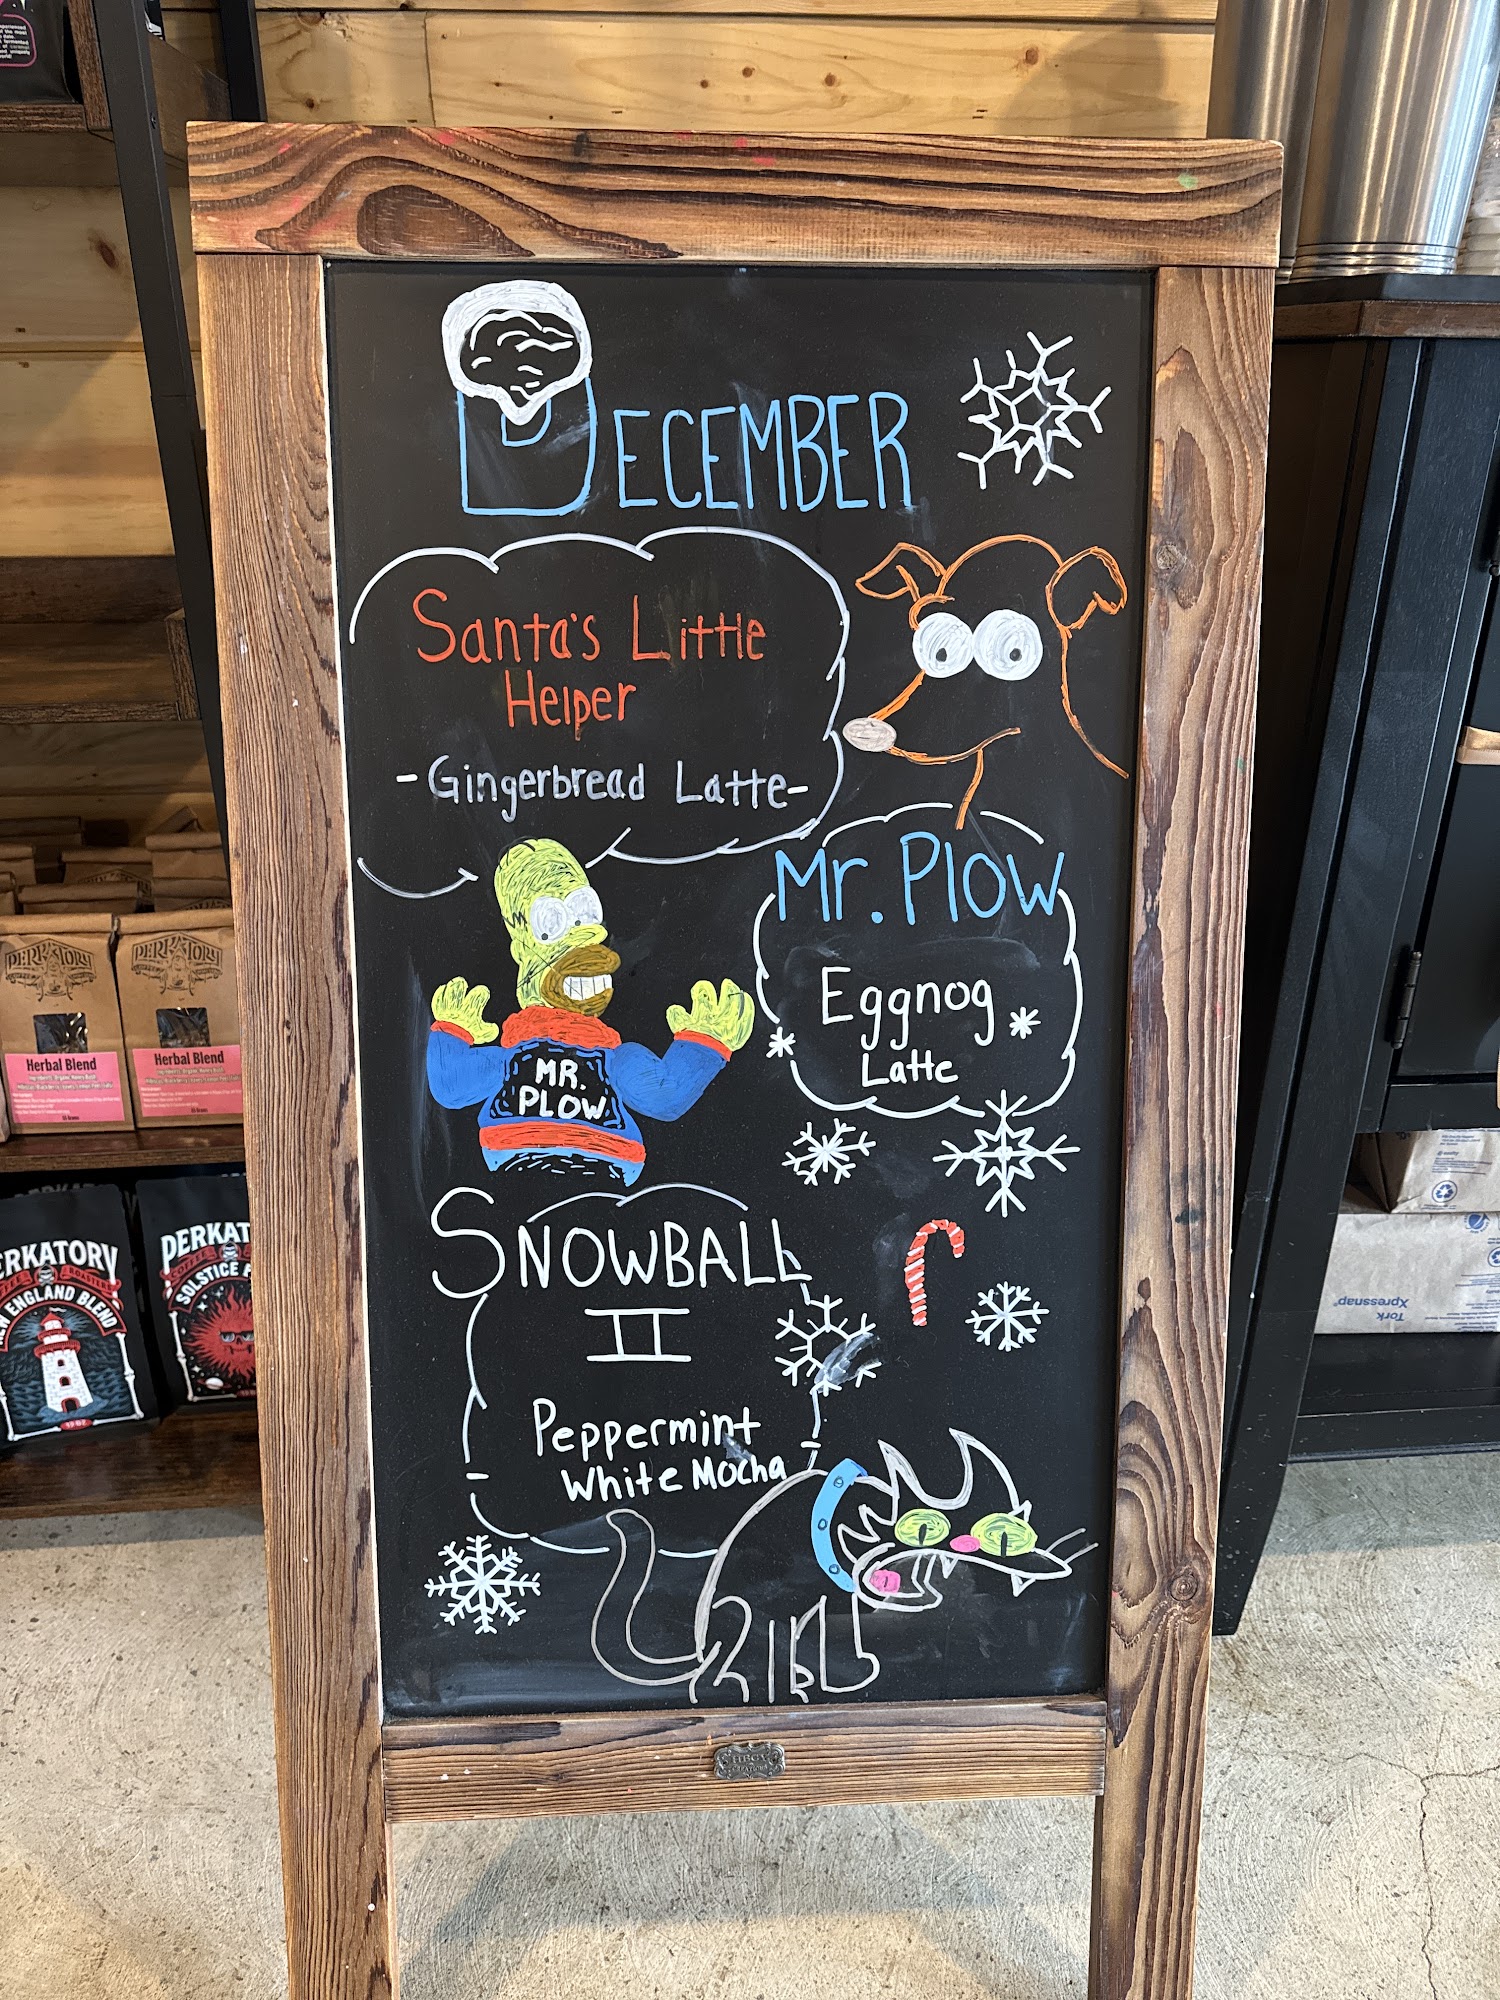 DECEMBER
Santa's Little
Helper
-Gingerbread Latte-
Mr. Plow
Eggnog
Latte
MR.
PLOW
SNOWBALL
II
Peppermint
White Mocha
PERKATORY
Herbal Blend
PERKATORY
Herbal Blend
ERKATORY
COFFEE ROASTERS
NEW ENGLAND BLEND
PERKAT
COFFEE
SOLSTICE
Tork
Xpressnap®